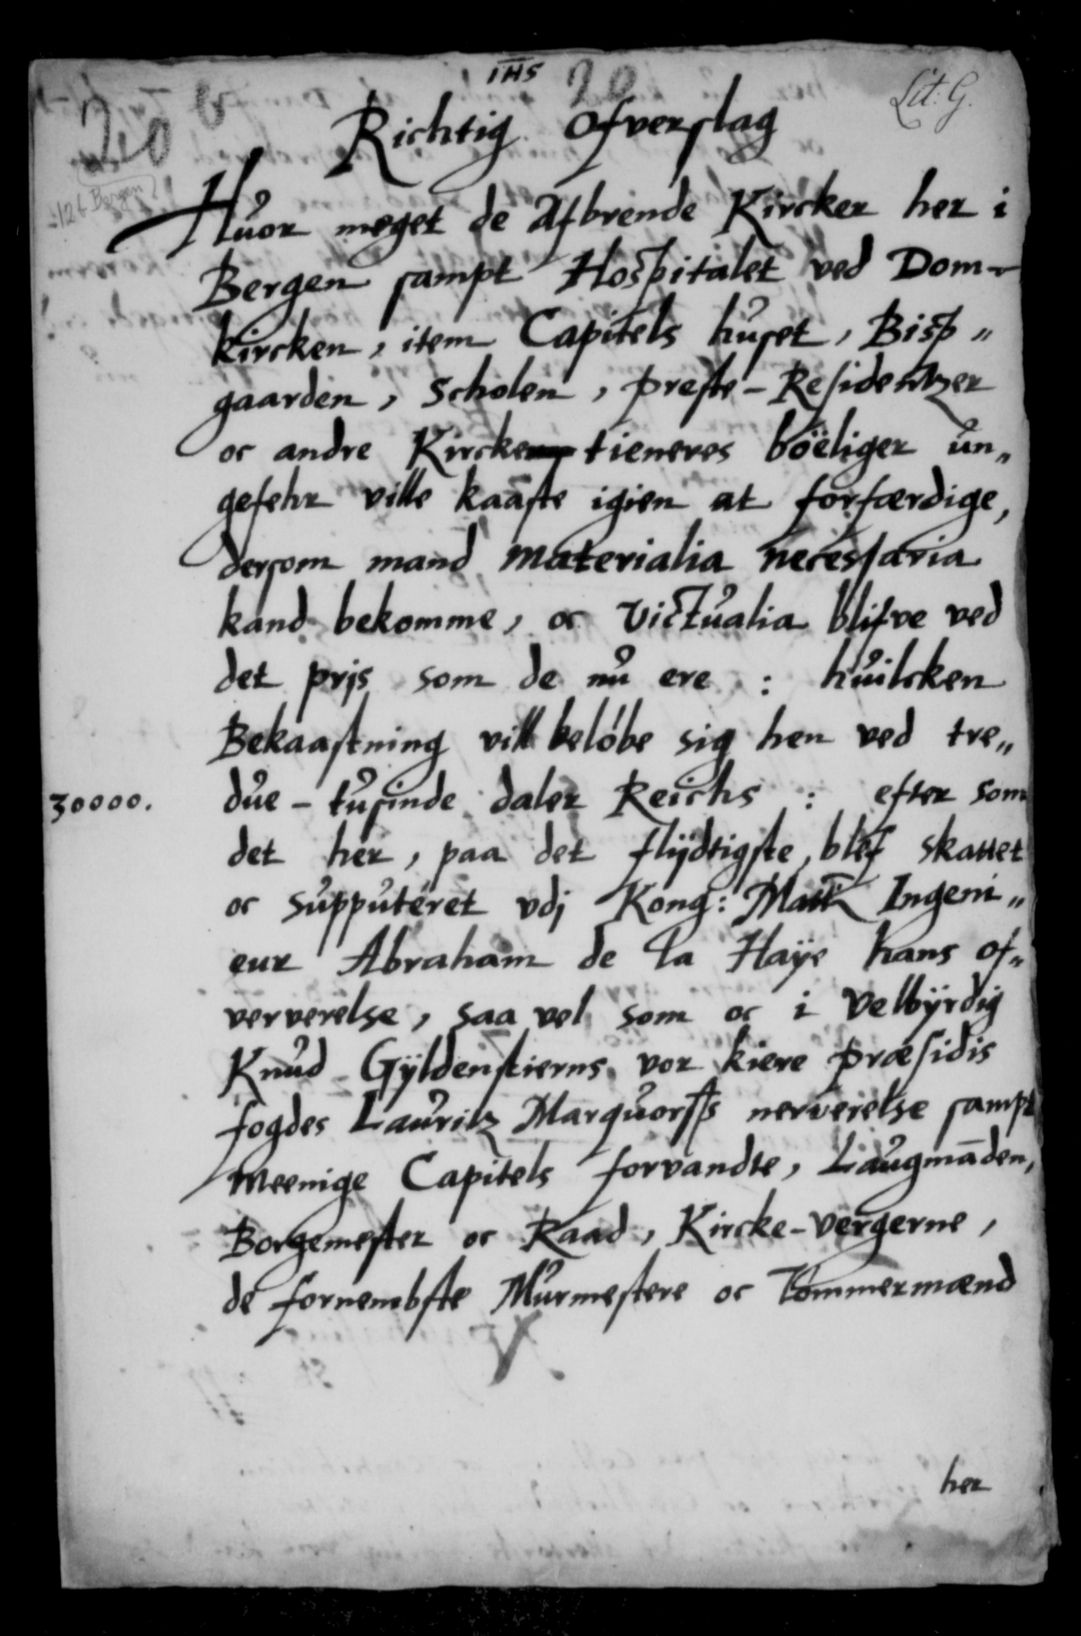 IHS
20
Lit: G.
210
126 Bergen
Richtig Ofverslag
Huor meget de Afbrende Kircker her i
Bergen sampt Hospitalet ved Dom-
kircken, item Capitels huset, Bisp„
gaarden, Scholen, preste-Residentzer
oc andre Kircke tieneres boëliger un„
gefehr ville kaaste igien at forfærdige,
dersom mand materialia necessaria
kand bekomme, oc Victualia blifve ved
det prjs som de nu ere : huilcken
Bekaastning vill beløbe sig hen ved tre„
30000. due-tusinde daler Reichs : efter som
det her, paa det flijdtigste, blef skattet
oc supputeret vdj Kong: Matt: Ingeni„
eur Abraham de la Haÿe hans of„
ververelse, saa vel som oc i Velbÿrdig
Knud Gÿldenstierns vor kiere præsidis
fogdes Lauritz Marquorss nerverelse sampt
Meenige Capitels forvandte, Laugmāden,
Borgemester oc Raad, Kircke-vergerne,
de fornembste Murmestere oc Tømmermænd
her